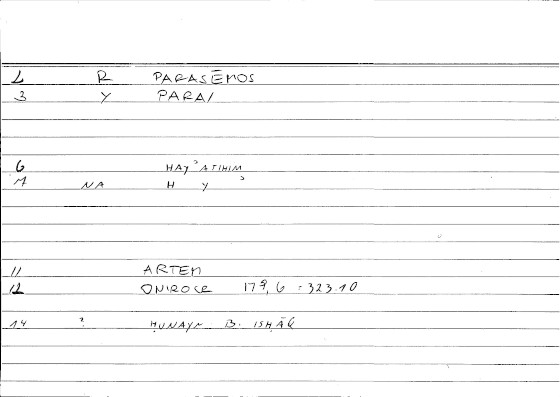 1 R PARASĒMOS
3 Y PARA/
6 HAYʾATIHIM
7 NA H Y ʾ
11 ARTEM
12 ONIROCR 179,6 = 323.10
14 ? ḤUNAYN B. ISḤĀQ